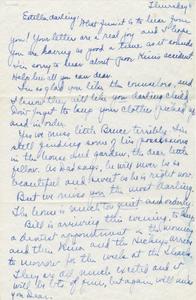 Thursday
Estelle darling: What fun it is to hear from
you! Your letters are a real joy and I hope
you are having as good a time as it sounds
I'm sorry to hear about poor accident
Help her all you can dear.
I'm so glad you like the counselors, and
I know they will like you darling child
Don't forget to keep your clothes picked up
and in order.
Yes we miss little Bruce terribly. I'm
still finding some of his possessions
in the house and garden, the dear little
fellow. As Dad says, he will never be so
beautiful and sweet as he is right now.
But we miss you the most darling.
The house is much too quiet and orderly
Bill is arriving this evening, to keep
a dentist appointment in the morning
and then and the
tomorrow for the week at the
They are all much excited and it
will be lots of fun, but again will miss
you Dear.